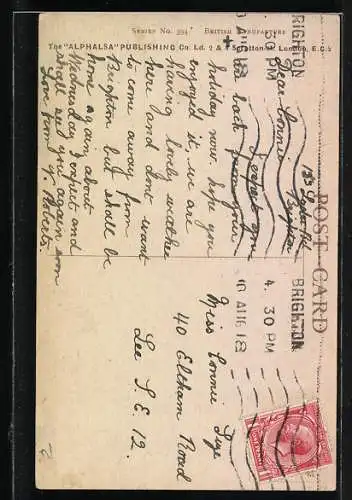 SERIES No. 394 BRITISH MANUFACTURE
The "ALPHALSA" PUBLISHING Co. Ld. 2 & Scrutton London, E.C.2
POST CARD
BRIGHTON
4. 30 PM
10 AU 18
BRIGHTON
4. 30 PM
Brighton
Dear Connie
I expect you
are back from your
holiday now, hope you
enjoyed it, we are
having lovely weather
here and dont want
to come away from
Brighton but shall be
home again about
Wednesday I expect and
shall see you again soon
Love from
Roberts.
Miss Connie
40 Eltham Road
Lee S.E. 12.